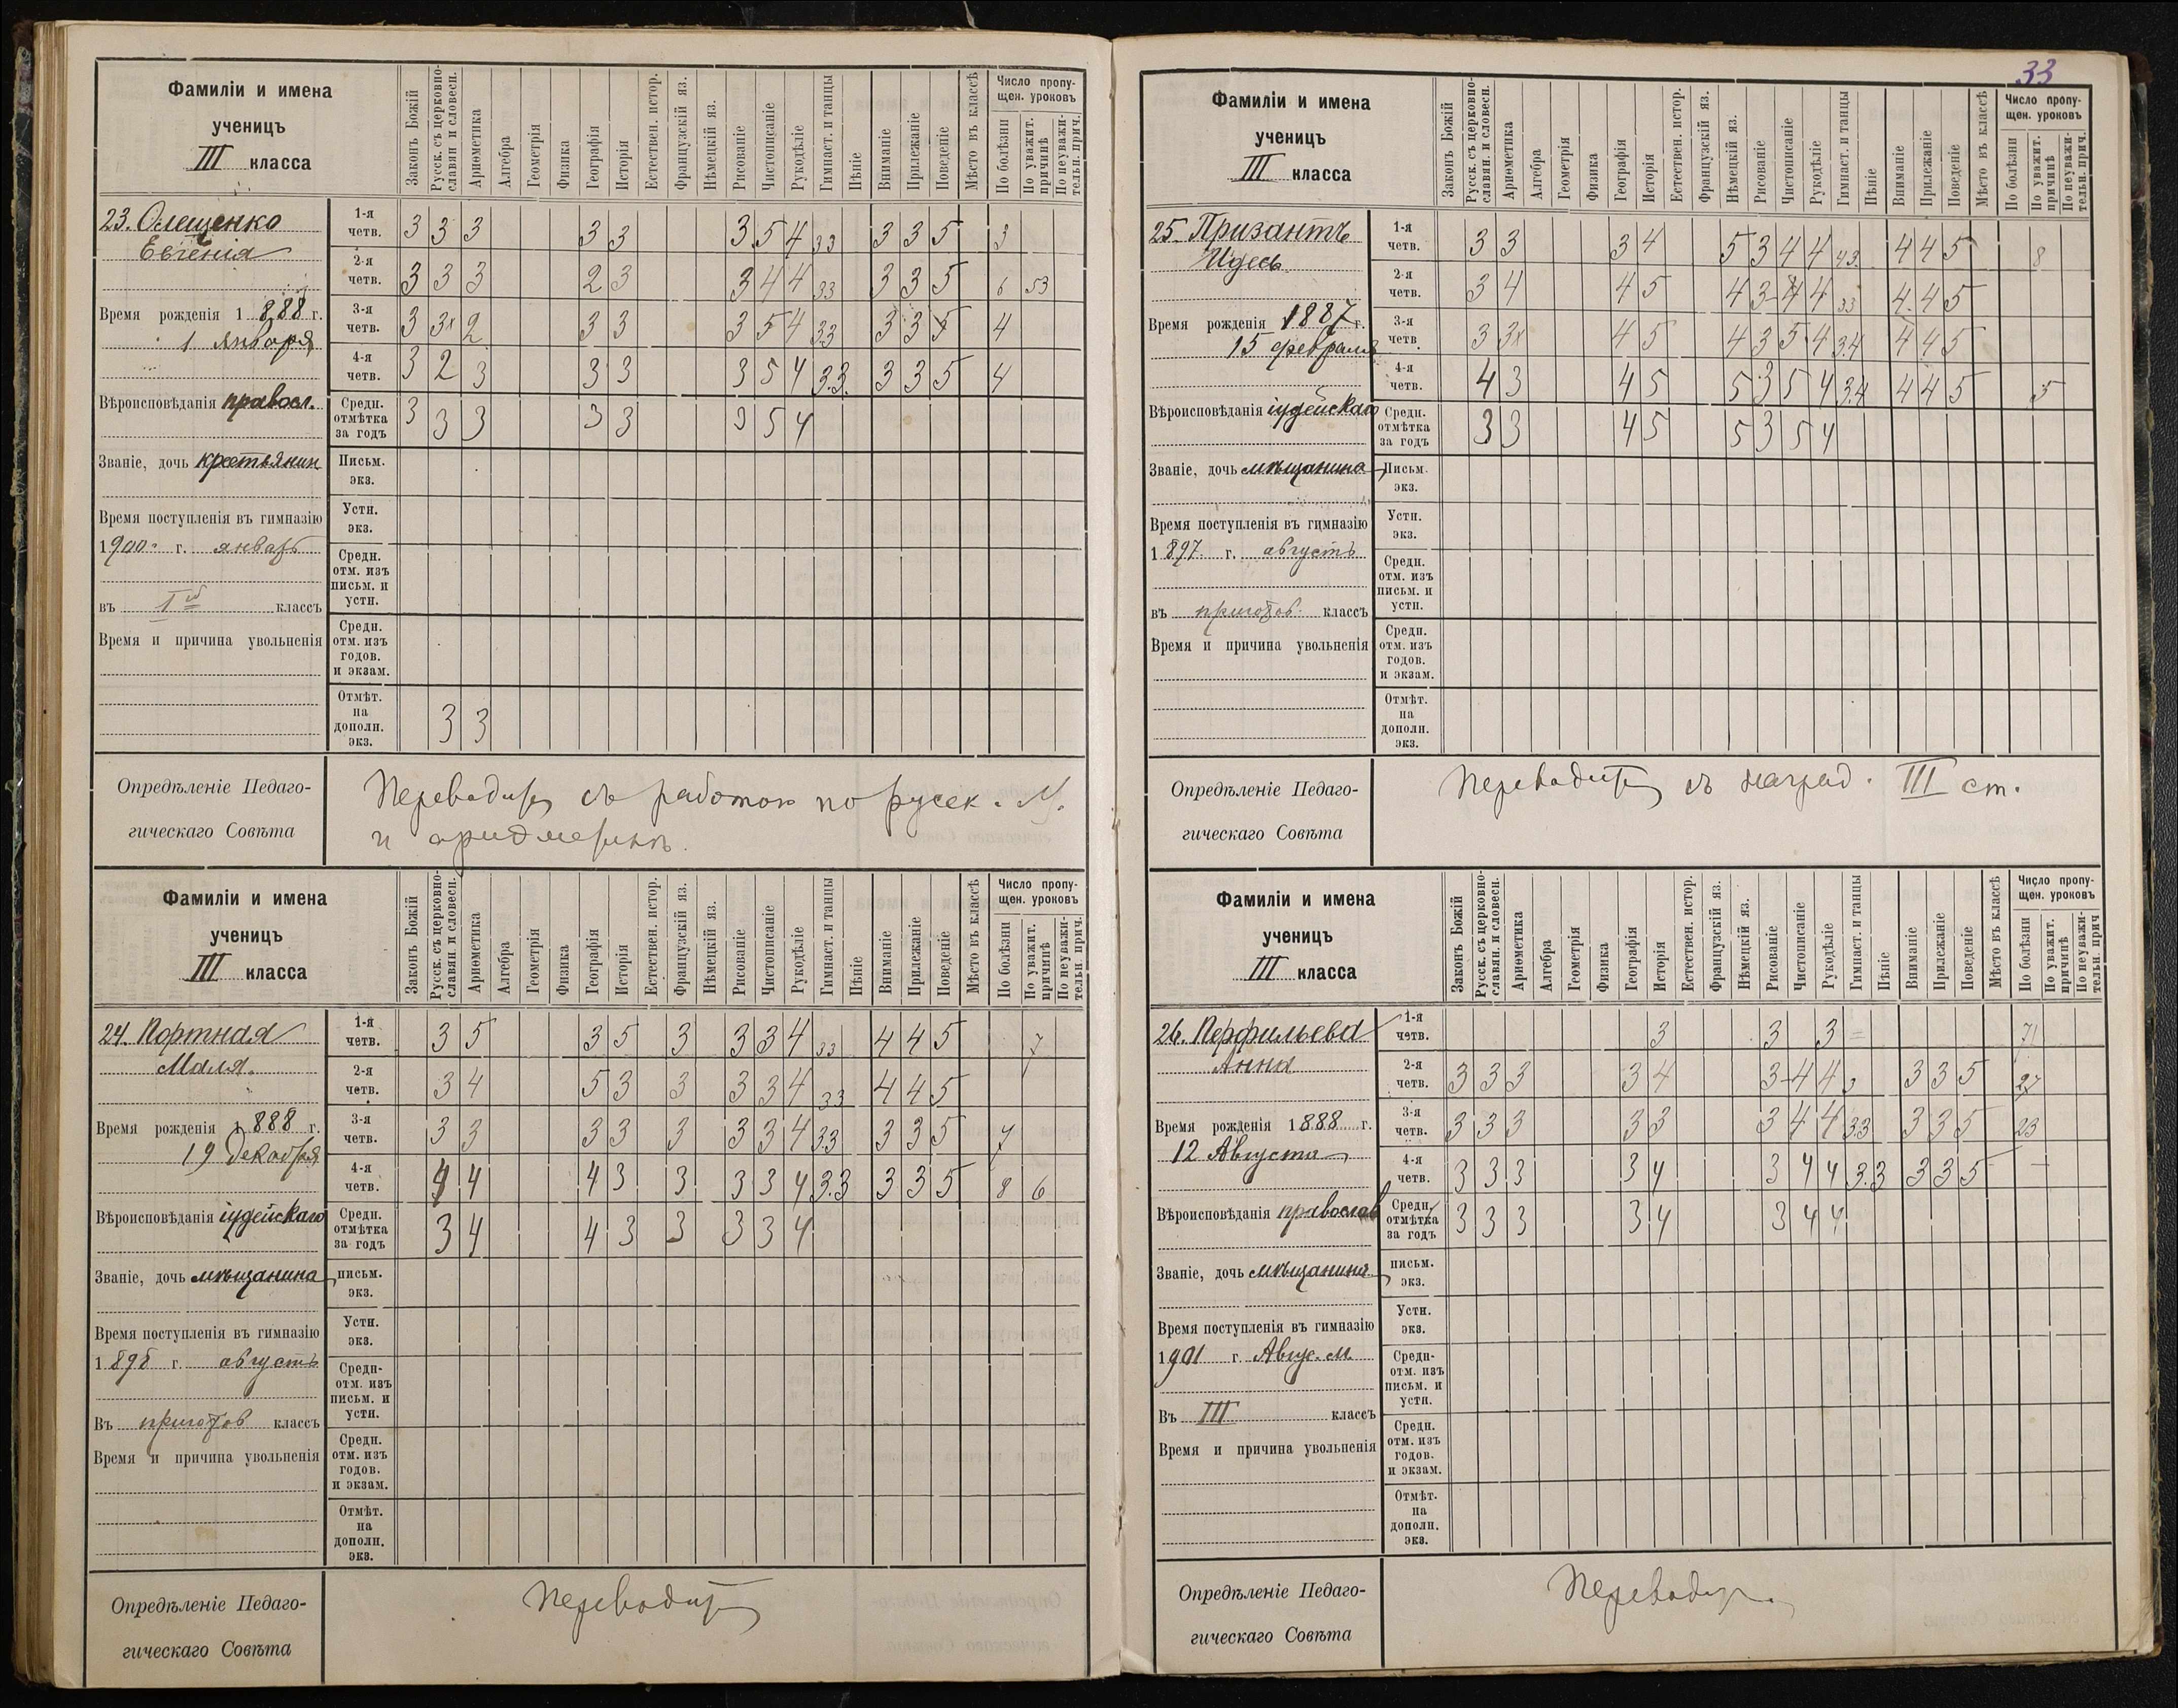 33
Фамиліи и имена
ученицъ
III класса
Законъ Божій
Русск. съ церковно-
славян. и словесн.
Ариѳметика
Алгебра
Геометрія
Физика
Географія
Исторія
Естествен. истор.
Французскій яз.
Нѣмецкій яз.
Рисованіе
Чистописаніе
Рукодѣліе
Гимнаст. и танцы
Пѣніе
Вниманіе
Прилежаніе
Поведеніе
Мѣсто въ классѣ
Число пропу-
щен. уроковъ
По болѣзни
По уважит.
причинѣ
По неуважи-
тельн. прич.
23. Олещенко
Евгенія
Время рожденія 1888 г.
1 Января
Вѣроисповѣданія правосл.
Званіе, дочь крестьянин
Время поступленія въ гимназію
1900 г. январь
въ I классъ
Время и причина увольненія
1-я четв. 3 3 3 3 3 3 5 4 3 3 3 3 5 3
2-я четв. 3 3 3 2 3 3 4 4 3 3 3 3 5 6 53
3-я четв. 3 3х 2 3 3 3 5 4 3 3 3 3 5 4
4-я четв. 3 2 3 3 3 3 5 4 3.3. 3 3 5 4
Средн. отмѣтка за годъ 3 3 3 3 3 3 5 4
Письм. экз.
Устн. экз.
Средн. отм. изъ письм. и устн.
Средн. отм. изъ годов. и экзам.
Отмѣт. на дополн. экз. 3 3
Опредѣленіе Педаго-
гическаго Совѣта
съ работою по русск. и
Фамиліи и имена
ученицъ
III класса
Законъ Божій
Русск. съ церковно-
славян. и словесн.
Ариѳметика
Алгебра
Геометрія
Физика
Географія
Исторія
Естествен. истор.
Французскій яз.
Нѣмецкій яз.
Рисованіе
Чистописаніе
Рукодѣліе
Гимнаст. и танцы
Пѣніе
Вниманіе
Прилежаніе
Поведеніе
Мѣсто въ классѣ
Число пропу-
щен. уроковъ
По болѣзни
По уважит.
причинѣ
По неуважи-
тельн. прич.
24. Портная
Маля.
Время рожденія 1888 г.
19 Декабря
Вѣроисповѣданія іудейскаго
Званіе, дочь мѣщанина
Время поступленія въ гимназію
1898 г. августъ
Въ приготов классъ
Время и причина увольненія
1-я четв. 3 5 3 5 3 3 3 4 3 3 4 4 5 7
2-я четв. 3 4 5 3 3 3 3 4 3 3 4 4 5
3-я четв. 3 3 3 3 3 3 3 4 3 3 3 3 5 7
4-я четв. 4 4 4 3 3 3 3 4 3.3 3 3 5 8 6
Средн. отмѣтка за годъ 3 4 4 3 3 3 3 4
письм. экз.
Устн. экз.
Средн- отм. изъ письм. и устн.
Средн. отм. изъ годов. и экзам.
Отмѣт. на дополн. экз.
Опредѣленіе Педаго-
гическаго Совѣта
Фамиліи и имена
ученицъ
III класса
Законъ Божій
Русск. съ церковно-
славян. и словесн.
Ариѳметика
Алгебра
Геометрія
Физика
Географія
Исторія
Естествен. истор.
Французскій яз.
Нѣмецкій яз.
Рисованіе
Чистописаніе
Рукодѣліе
Гимнаст. и танцы
Пѣніе
Вниманіе
Прилежаніе
Поведеніе
Мѣсто въ классѣ
Число пропу-
щен. уроковъ
По болѣзни
По уважит.
причинѣ
По неуважи-
тельн. прич.
25. Призантъ
Идесь.
Время рожденія 1887 г.
15 февраля
Вѣроисповѣданія іудейскаго
Званіе, дочь мѣщанина
Время поступленія въ гимназію
1897 г. августъ
въ приготов. классъ
Время и причина увольненія
1-я четв. 3 3 3 4 5 3 4 4 4 3. 4 4 5 8
2-я четв. 3 4 4 5 4 3- 4 4 3 3 4 4 5
3-я четв. 3 3х 4 5 4 3 5 4 3.4 4 4 5
4-я четв. 4 3 4 5 5 3 5 4 3.4 4 4 5 5
Средн. отмѣтка за годъ 3 3 4 5 5 3 5 4
Письм. экз.
Устн. экз.
Средн. отм. изъ письм. и устн.
Средн. отм. изъ годов. и экзам.
Отмѣт. на дополн. экз.
Опредѣленіе Педаго-
гическаго Совѣта
съ наград. III ст.
Фамиліи и имена
ученицъ
III класса
Законъ Божій
Русск. съ церковно-
славян. и словесн.
Ариѳметика
Алгебра
Геометрія
Физика
Географія
Исторія
Естествен. истор.
Французскій яз.
Нѣмецкій яз.
Рисованіе
Чистописаніе
Рукодѣліе
Гимнаст. и танцы
Пѣніе
Вниманіе
Прилежаніе
Поведеніе
Мѣсто въ классѣ
Число пропу-
щен. уроковъ
По болѣзни
По уважит.
причинѣ
По неуважи-
тельн. прич
26. Перфильева
Анна
Время рожденія 1888 г.
12 Августа
Вѣроисповѣданія православ
Званіе, дочь мѣщанина
Время поступленія въ гимназію
1901 г. Авгус. м.
Въ III классъ
Время и причина увольненія
1-я четв. 3 3 3 = 71
2-я четв. 3 3 3 3 4 3- 4 4 3 3 3 5 27
3-я четв. 3 3 3 3 3 3 4 4 3 3 3 3 5 23
4-я четв. 3 3 3 3 4 3 4 4 3.3 3 3 5 —
Средн. отмѣтка за годъ 3 3 3 3 4 3 4 4
письм. экз.
Устн. экз.
Средн- отм. изъ письм. и устн.
Средн. отм. изъ годов. и экзам.
Отмѣт. на дополн. экз.
Опредѣленіе Педаго-
гическаго Совѣта